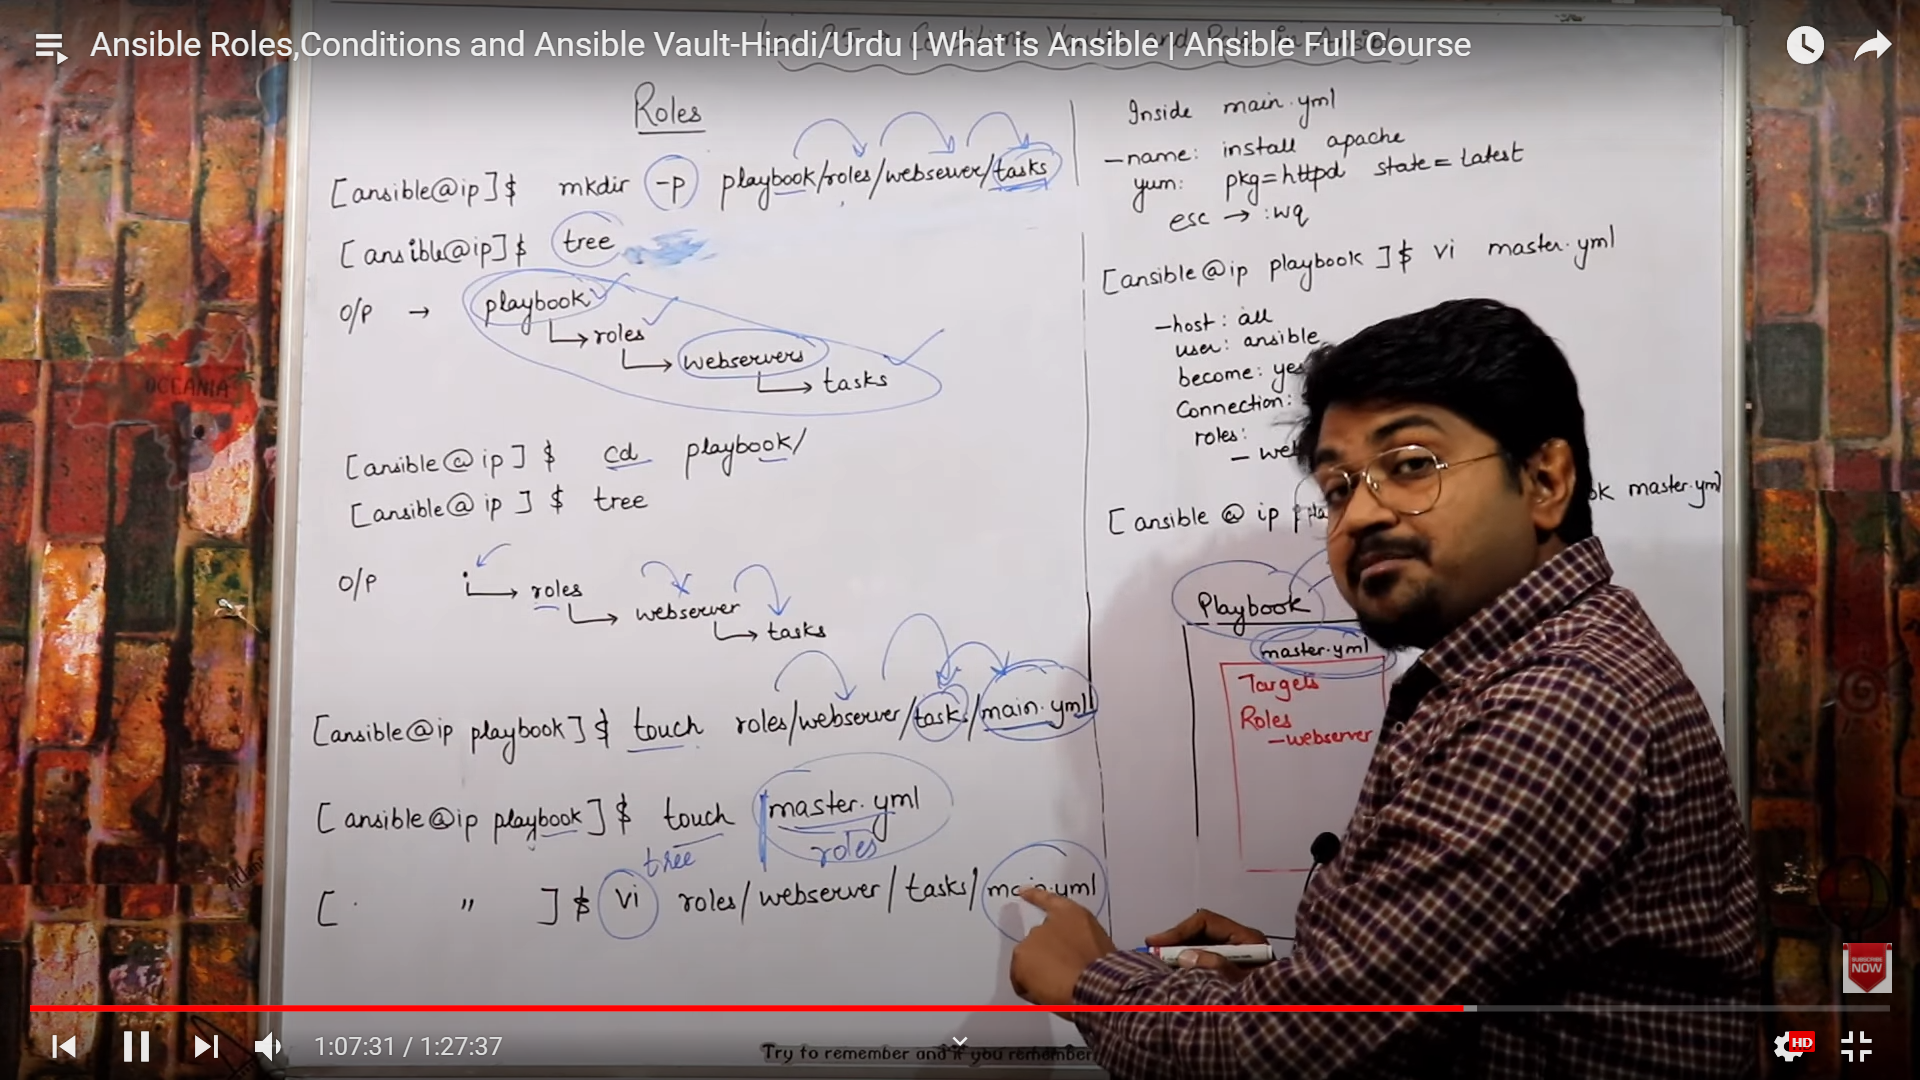 Ansible Roles,Conditions and Ansible Vault-Hindi/Urdu | What is Ansible | Ansible Full Course
Roles
[ansible@ip]$ mkdir -p playbook/roles/webserver/tasks
[ansible@ip]$ tree
O/P → playbook
↳ roles
↳ webservers
↳ tasks
[ansible@ip]$ cd playbook/
[ansible@ip]$ tree
O/P .
↳ roles
↳ webserver
↳ tasks
[ansible@ip playbook]$ touch roles/webserver/task/main.yml
[ansible@ip playbook]$ touch master.yml
tree roles
[ " ]$ vi roles/webserver/tasks/main.yml
Inside main.yml
-name: install apache
yum: pkg=httpd state=latest
esc → :wq
[ansible@ip playbook]$ vi master.yml
-host: all
user: ansible
become: yes
Connection:
roles:
- web
[ansible@ip master.yml
Playbook
master.yml
Targets
Roles
-webserver
OCEANIA
SUBSCRIBE
NOW
1:07:31 / 1:27:37
HD
Try to remember and if you remember